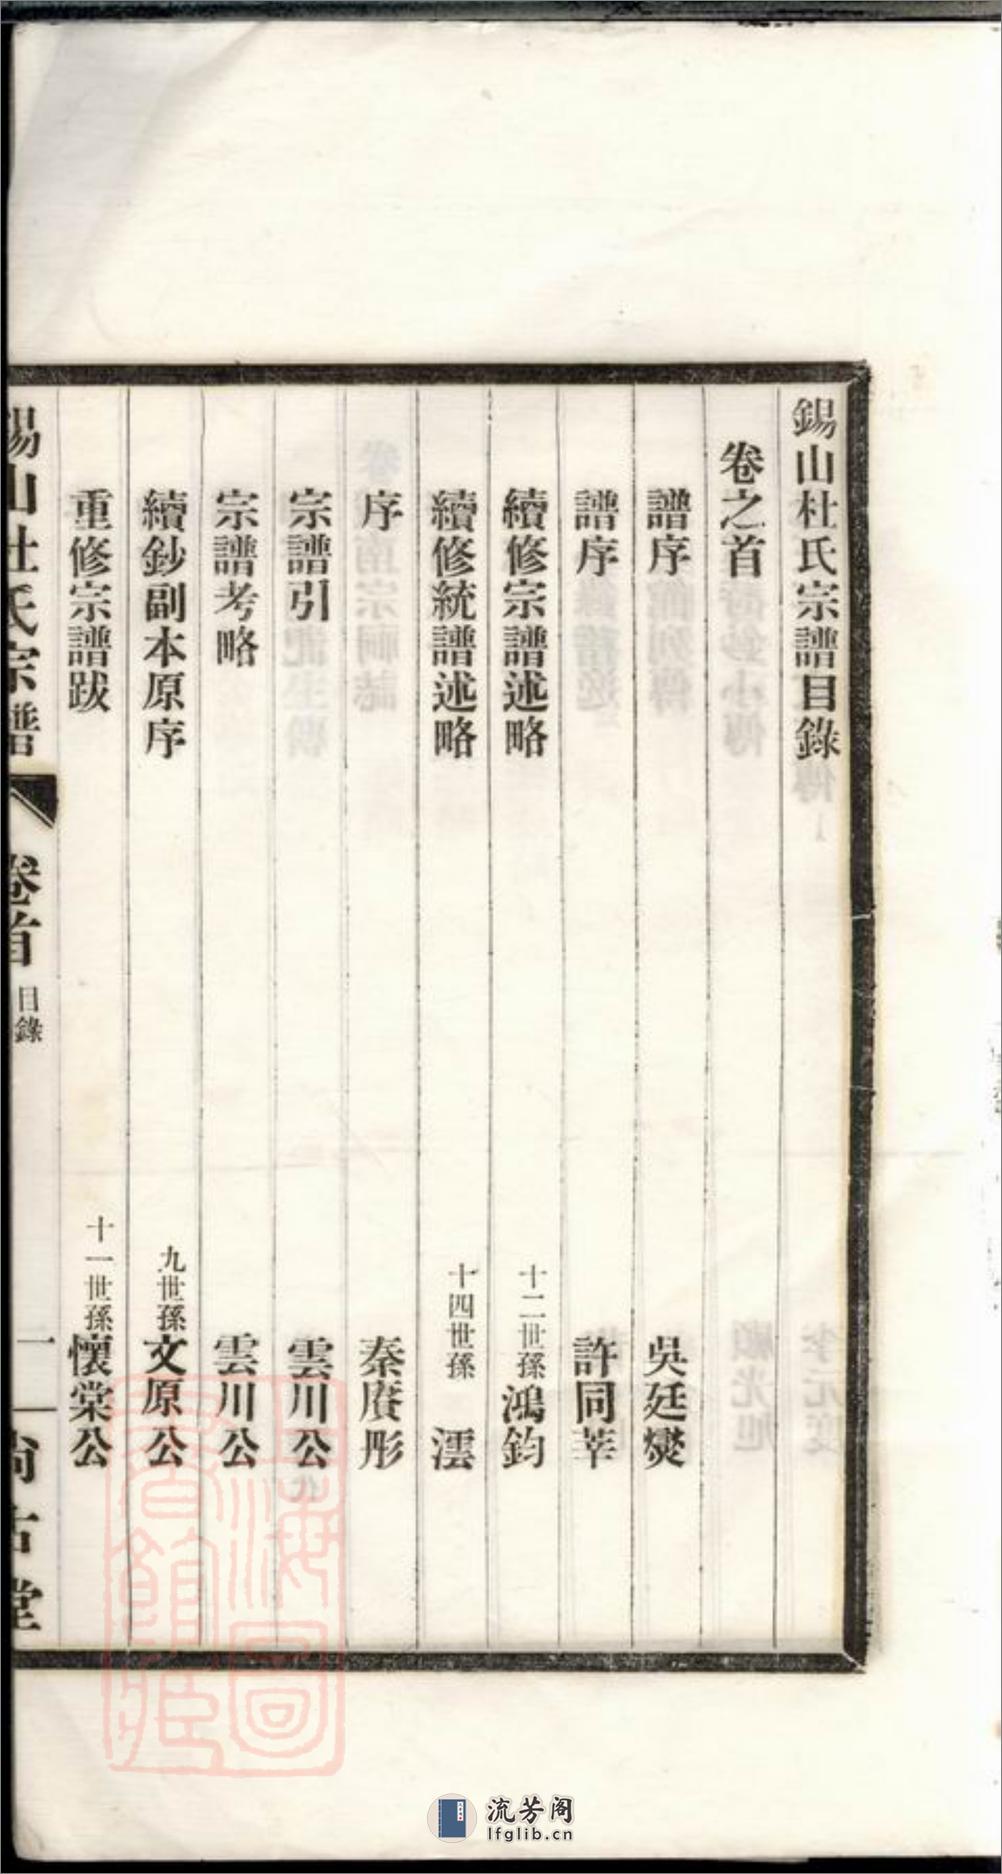 錫山杜氏宗譜目錄
卷之首
譜序 吳廷燮
譜序 許同莘
續修宗譜述略 十二世孫鴻鈞
續修統譜述略 十四世孫 澐
序 秦賡彤
宗譜引 雲川公
宗譜考略 雲川公
續鈔副本原序 九世孫文原公
重修宗譜跋 十一世孫懷棠公
錫山杜氏宗譜 卷首 目錄 一 尚古堂
流芳阁
lfglib.cn